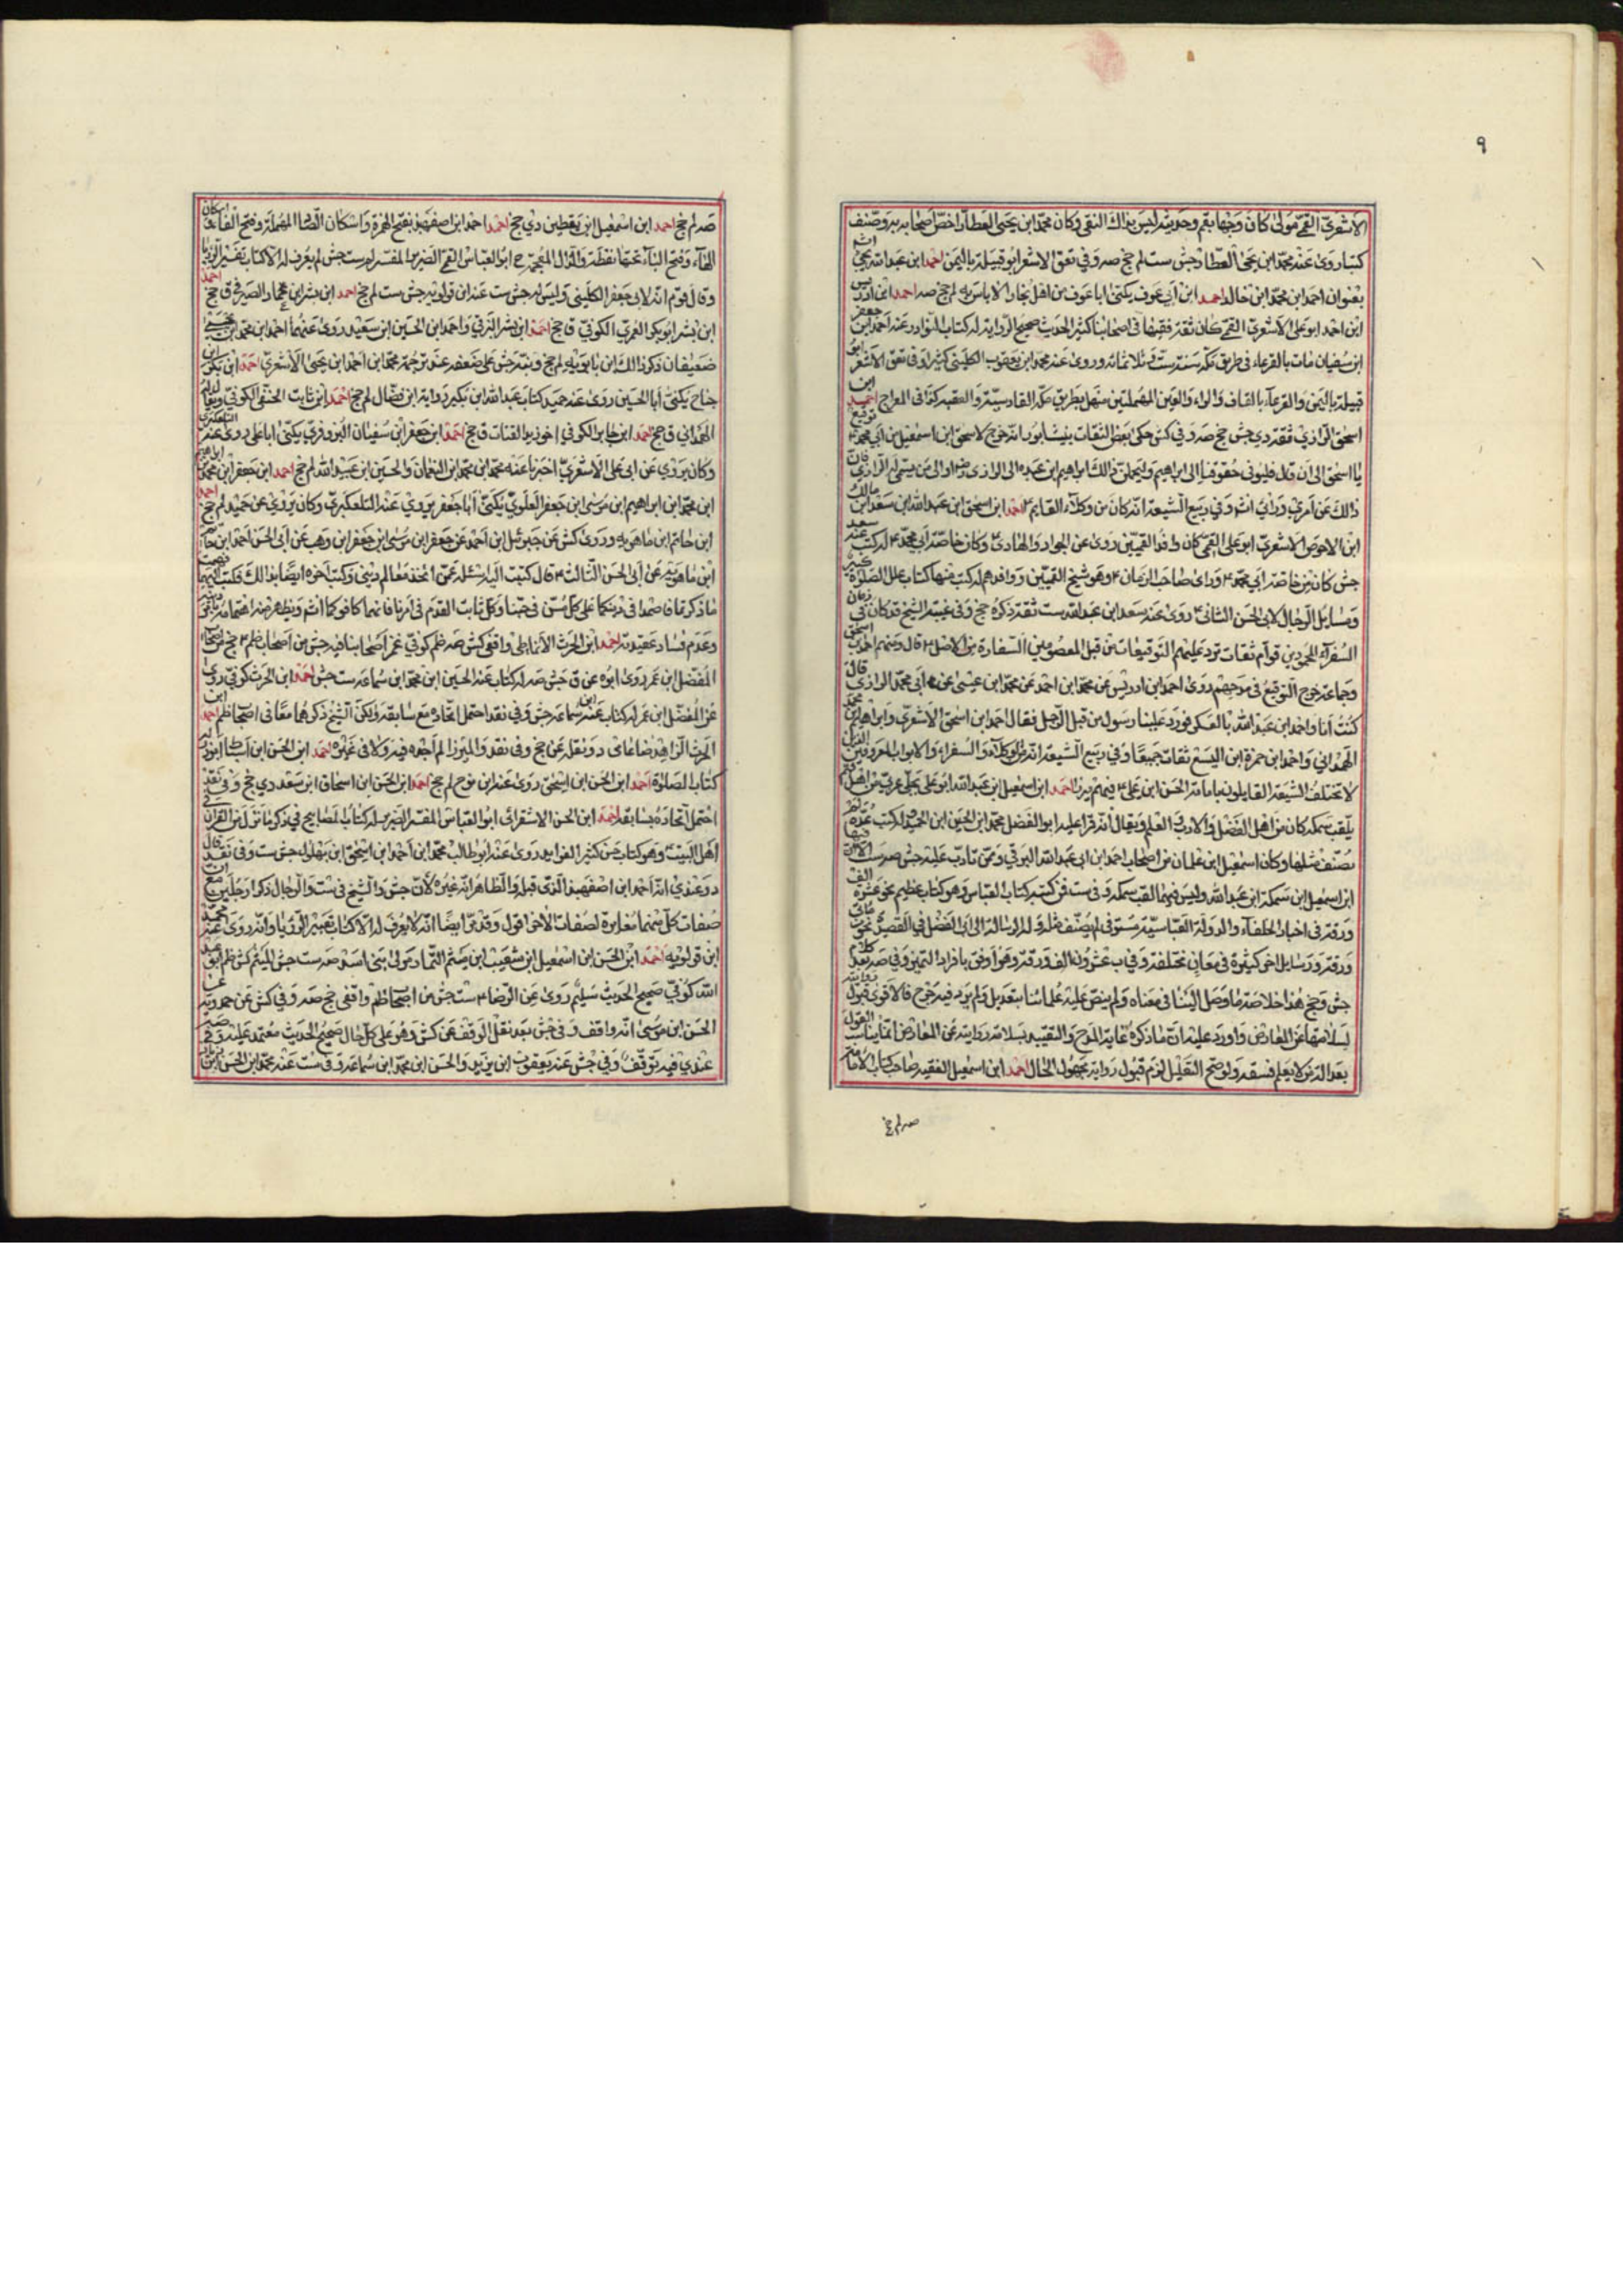 ٩
الاشعرى القمى مولى كان وجها بقم وحديثه ليس بذاك النقى وكان محمد ابن يحيى العطار اخص اصحابه به وصنف
كتبا روى عنه محمد ابن يحيى العطار جش ست لم جخ صه وفي نقد الاشعر ابو قبيلة باليمن احمد ابن عبد الله يجئ
بعنوان احمد ابن محمد ابن خالد احمد ابن ابي عوف يكنى ابا عوف من اهل بخارا لا باس به لم جخ صه احمد ابن ادريس
ابن احمد ابو على الاشعرى القمى كان ثقة فقيها في اصحابنا كثير الحديث صحيح الرواية له كتاب النوادر عنه احمد ابن جعفر
ابن سفيان مات بالقرعاء في طريق مكة سنة ست وثلاثمائة وروى عنه محمد ابن يعقوب الكلينى كثيرا وفي نقد الاشعر ابو
قبيلة باليمن والقرعاء بالقاف والراء والعين المهملتين منهل بطريق مكة القادسية والعقبة كذا في المعراج احمد ابن
اسحق الرازي ثقة دي جش جخ صه وفي كش حكى بعض الثقات بنيشابور انه خرج لاسحق ابن اسمعيل من ابي محمد ع توقيع
يا اسحق الى ان قال فليؤدى حقوقنا الى ابراهيم وليحمل ذالك ابراهيم ابن عبده الى الرازى رض او الى من يسمى له الرازى فان
ذالك عن امري ورائي انش وفي ربيع الشيعة انه كان من وكلاء القايم ع احمد ابن اسحق ابن عبد الله ابن سعد ابن مالك
ابن الاحوص الاشعري ابو على القمى كان وافد القميين روى عن الجواد والهادى ع وكان خاصة ابي محمد ع له كتب عنه سعد
جش كان من خاصة ابي محمد ع وراى صاحب الزمان ع وهو شيخ القميين ووافدهم له كتب منها كتاب علل الصلوة كبير
ومسايل الرجال لابي الحسن الثانى ع روى عنه سعد ابن عبد الله ست ثقة ذكره جخ وفي غيبة الشيخ قد كان في زمان
السفراء المحمودين قوام ثقات ترد عليهم التوقيعات من قبل المعصوبين السفارة من الاصل ع قال ومنهم احمد ابن اسحق
وجماعة خرج التوقيع في مدحهم روى احمد ابن ادريس عن محمد ابن احمد عن محمد ابن عيسى عن ابي محمد الرازى قال
كنت انا واحمد ابن عبد الله بالعسكر فورد علينا رسول من قبل الرجل فقال احمد ابن اسحق الاشعري وابراهيم ابن محمد
الهمداني واحمد ابن حمزة ابن اليسع ثقات جميعا وفي ربيع الشيعة انه من الوكلاء والسفراء والابواب المعروفين الذين
لا تختلف الشيعة القايلون بامامة الحسن ابن على ع فيهم يرن احمد ابن اسمعيل ابن عبد الله ابو على بجلى عربى من اهل قم
يلقب سمكه كان من اهل الفضل والادب والعلم ويقال انه قرا عليه ابو الفضل محمد ابن الحسين ابن العميد له كتب عدة لم
يصنف مثلها وكان اسمعيل ابن غلمان من اصحاب احمد ابن ابي عبد الله البرقي وممن تادب عليه جش صه ست الا ان فيها
ابن اسمعيل ابن سمكة ابن عبد الله وليس فيهما لقب سمكه وفي ست فمن كتبه كتاب العباس وهو كتاب عظيم نحو عشرة الف
ورقة في اخبار الخلفاء والدولة العباسية مستوفى لم يصنف مثله وله رسالة الى ابى الفضل في القصيدة نحو من مائتى
ورقة ورسايل اخر كثيرة في معان مختلفة وفي ب عشرون الف ورقة وهو اوفق بافراد التميز وفي صه بعد كلام
جش وجخ هذا خلاصة ما وصل الينا في معناه ولم ينص عليه علماؤنا بتعديل ولم يرد فيه جرح فالاقوى قبول روايته
لسلامتها عن المعارض واورد عليه ان ما ذكره غاية المدح والتقييد بسلامة روايته عن المعارض انما يناسب القول
بعدالة من لا يعلم فسقه ولو صح التعليل لزم قبول رواية مجهول الحال احمد ابن اسمعيل الفقيه صاحب كتاب الامامة
صه لم جخ
صه لم جخ احمد ابن اسمعيل ابن يقطين دي جخ احمد احمد ابن اصفهبذ بفتح الهمزة واسكان الصاد المهملة وفتح الفاء واسكان
الهاء وفتح الباء تحتها نقطة والذال المعجمة ابو العباس القمى الضرير المفسر لم ست جش لم يعرف له الا كتاب تفسير الرؤيا
وقال قوم انه لابى جعفر الكلينى وليس له جش ست عنه ابن قولويه جش ست لم جخ احمد ابن بشر ابن عمار الصيرفى ق جخ احمد
ابن بشر ابو بكر العمرى الكوفي ق جخ احمد ابن بشر البرقي واحمد ابن الحسين ابن سعيد روى عنهما احمد ابن محمد ابن يحيى
ضعيفان ذكر ذالك ابن بابويه لم جخ ونبه جش على ضعفه عند ترجمة محمد ابن احمد ابن يحيى الاشعري احمد ابن بكر ابن
جناح يكنى ابا الحسين روى عنه حميد كتاب عبد الله ابن بكير رواية ابن فضال لم جخ احمد ابن ثابت الحنفى الكوفي ويقال له
الهمداني ق جخ احمد ابن جابر الكوفي اخو زيد القتات ق جخ احمد ابن جعفر ابن سفيان البزوفري يكنى ابا على روى عنه التلعكبرى
وكان يروي عن ابي على الاشعري اخبرنا عنه محمد ابن محمد ابن النعمان والحسين ابن عبيد الله لم جخ احمد ابن جعفر ابن محمد ابن ابراهيم
ابن محمد ابن ابراهيم ابن موسى ابن جعفر العلوي يكنى ابا جعفر يروي عنه التلعكبري وكان يروي عن حميد لم جخ احمد
ابن حاتم ابن ماهويه وروى كش عن جبرئيل ابن احمد عن جعفر ابن موسى ابن جعفر ابن وهب عن ابي الحسن احمد ابن حاتم
ابن ماهويه عن ابي الحسن الثالث ع قال كتبت اليه اسئله عمن اخذ معالم ديني وكتب اخوه ايضا بذالك فكتب اليهما فهمت
ما ذكرتما فاصمدا في دينكما على كل مسن في حبنا وكل ثابت القدم في امرنا فانهما كافوكما انش ويظهر منه اهتمامه بامر دينه
وعدم فساد عقيدته احمد ابن الحرث الانماطى واقفى كش صه ظم كوفي غمز اصحابنا فيه جش من اصحاب ظم ع جخ من اصحاب
المفضل ابن عمر روى ابوه عن ق جش صه له كتاب عنه الحسين ابن محمد ابن سماعه ست جش احمد ابن الحرث كوفي روى
عن المفضل ابن عمر له كتاب عنه ابن سماعه جش وفي نقد احتمل اتحاده مع سابقه ولكن الشيخ ذكرهما معا في اصحاب ظم احمد ابن
الحرث الزاهد ضاعاى د ونقل عن جخ وفي نقد والميرزا لم اجده فيه ولا في غيره احمد ابن الحسن ابن اسحاق ابو ذر له
كتاب الصلوة احمد ابن الحسن ابن اسحق روى عنه ابن نوح لم جخ احمد ابن الحسن ابن اسحاق ابن سعد دي جخ وفي نقد
احتمل اتحاده بسابقه احمد ابن الحسن الاسفرائى ابو العباس المفسر الضرير له كتاب المصابيح في ذكر ما نزل من القران في
اهل البيت ع وهو كتاب حسن كثير الفوايد روى عنه ابو طالب محمد ابن احمد ابن اسحق ابن بهلول جش ست وفي نقد قال
د وعندي انه احمد ابن اصفهبذ الذى قبله والظاهر انه غيره لان جش والشيخ في ست والرجال ذكرا رجلين مع ان
صفات كل منهما مغايرة لصفات الاخر اقول وقد مر ايضا انه لا يعرف له الا كتاب تعبير الرؤيا وانه روى عنه محمد
ابن قولويه احمد ابن الحسن ابن اسمعيل ابن شعيب ابن ميثم التمار مولى بنى اسد صه ست جش الميثم كش ظم ابو عبد
الله كوفي صحيح الحديث سليم روى عن الرضا ع ست جش من اصحاب ظم واقفى جخ صه وفي كش عن حمدويه عن
الحسن ابن موسى انه واقف وفي جش بعد نقل الوقف عن كش وهو على كل حال صحيح الحديث معتمد عليه وفي صه
عندي فيه توقف وفي جش عنه يعقوب ابن يزيد والحسن ابن محمد ابن سماعه وفي ست عنه محمد ابن الحسن ابن زياد